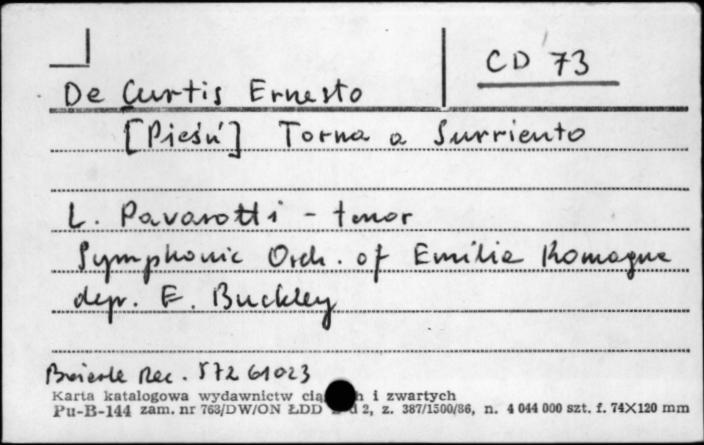 CD 73
De Curtis Ernesto
[Pieśń] Torna a Surriento
L. Pavarotti - tenor
Symphonic Orch. of Emilia Romagne
dyr. E. Buckley
Rec. 572 61023
Karta katalogowa wydawnictw i zwartych
Pu-B-144 zam. nr 768/DW/ON ŁDD 2, z. 387/1500/86, n. 4 044 000 szt. f. 74X120 mm